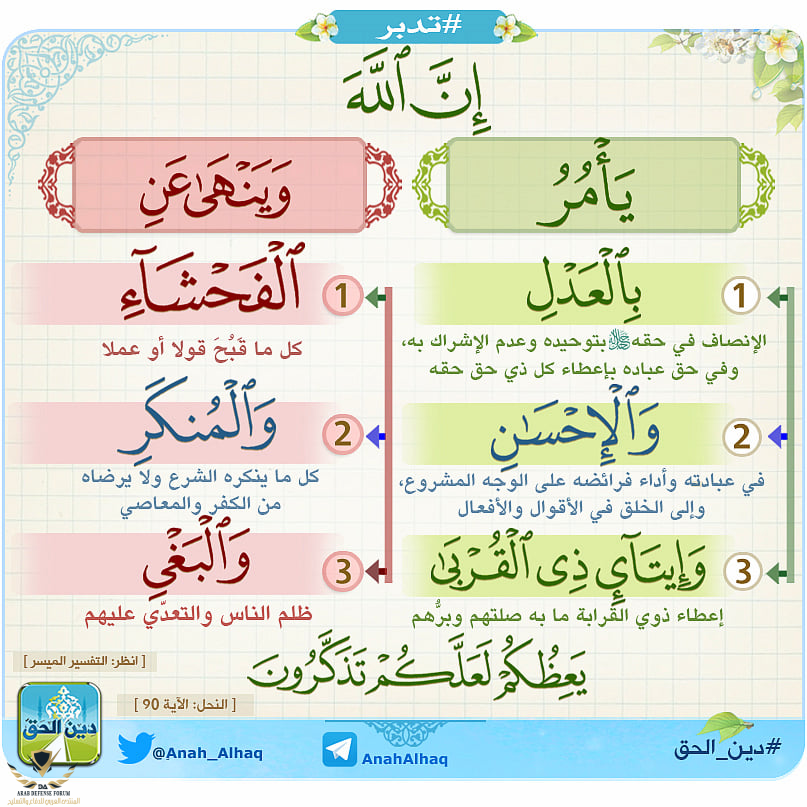 #تدبر
إِنَّ ٱللَّهَ
يَأْمُرُ
بِٱلْعَدْلِ
1
الإنصاف في حقه ﷻ بتوحيده وعدم الإشراك به،
وفي حق عباده بإعطاء كل ذي حق حقه
وَٱلْإِحْسَـٰنِ
2
في عبادته وأداء فرائضه على الوجه المشروع،
وإلى الخلق في الأقوال والأفعال
وَإِيتَآئِ ذِى ٱلْقُرْبَىٰ
3
إعطاء ذوي القرابة ما به صلتهم وبرُّهم
وَيَنْهَىٰ عَنِ
ٱلْفَحْشَآءِ
1
كل ما قَبُحَ قولا أو عملا
وَٱلْمُنكَرِ
2
كل ما ينكره الشرع ولا يرضاه
من الكفر والمعاصي
وَٱلْبَغْىِ
3
ظلم الناس والتعدّي عليهم
يَعِظُكُمْ لَعَلَّكُمْ تَذَكَّرُونَ
[ انظر: التفسير الميسر ]
[ النحل: الآية 90 ]
#دين_الحق
AnahAlhaq
@Anah_Alhaq
دين الحق
DA
ARAB DEFENSE FORUM
المنتدى العربي للدفاع والتسليح